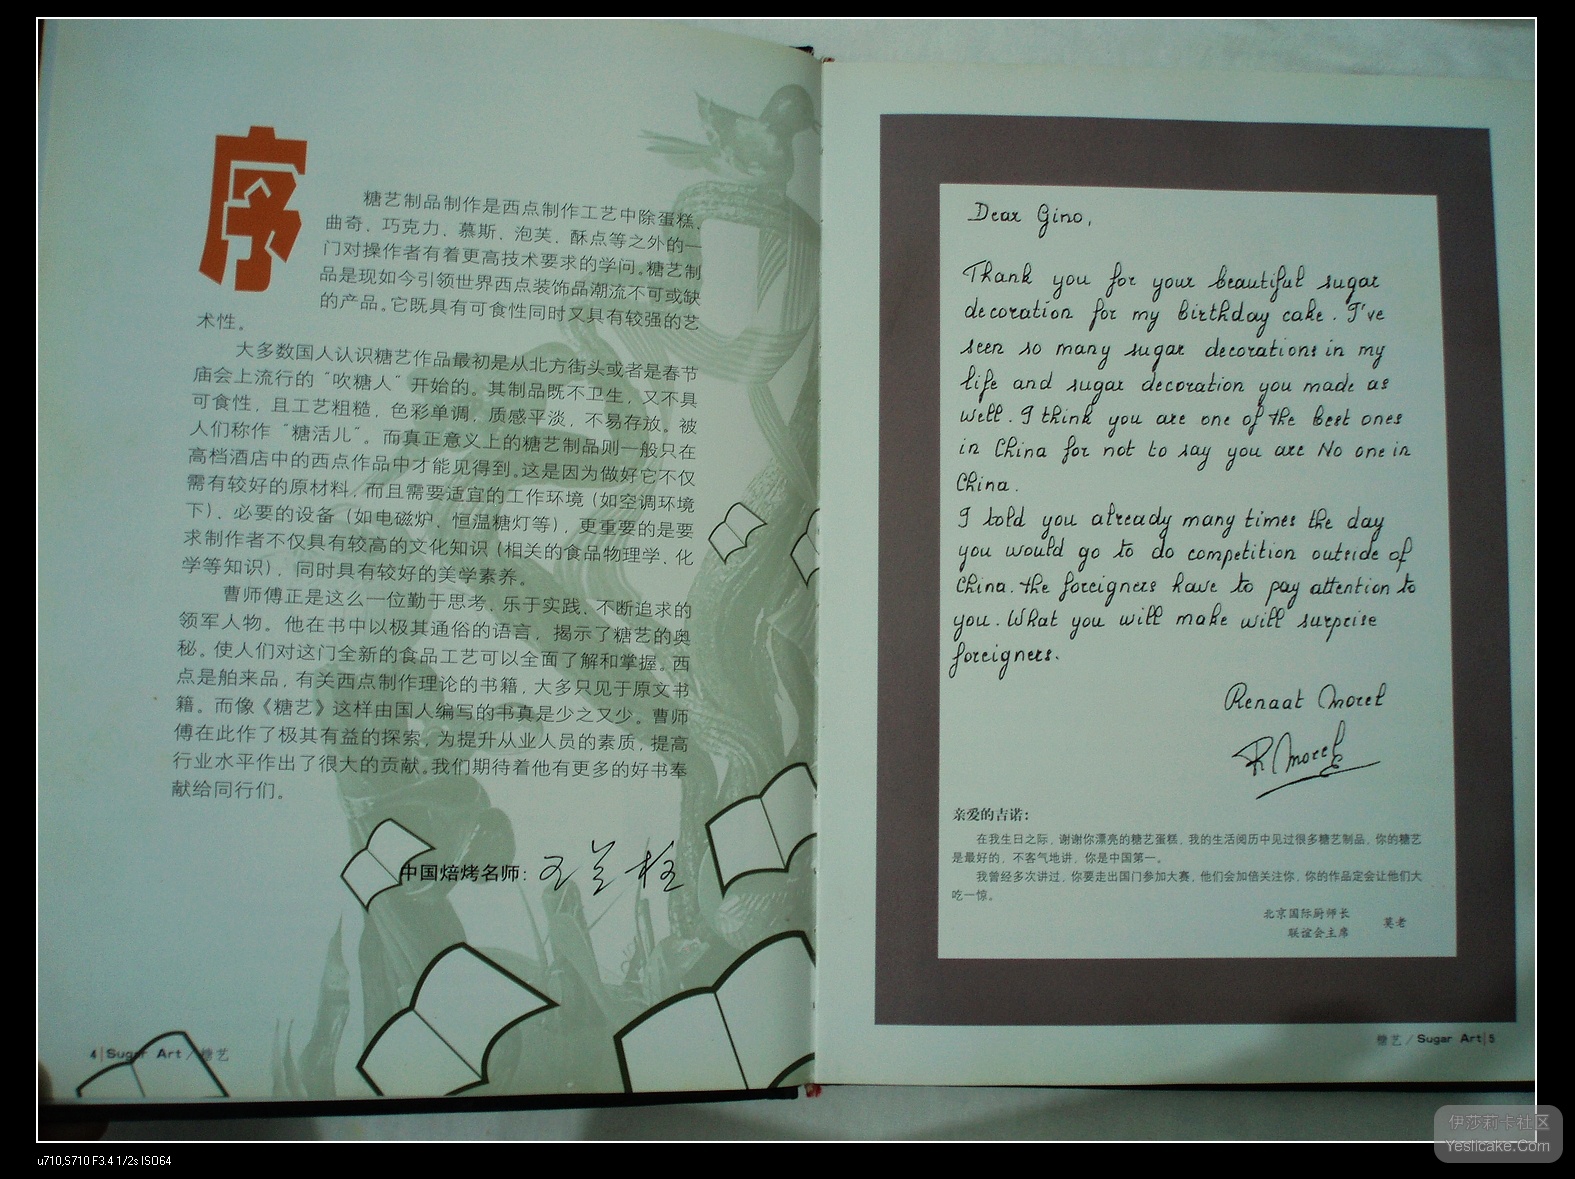 序
糖艺制品制作是西点制作工艺中除蛋糕、
曲奇、巧克力、慕斯、泡芙、酥点等之外的一
门对操作者有着更高技术要求的学问。糖艺制
品是现如今引领世界西点装饰品潮流不可或缺
的产品。它既具有可食性同时又具有较强的艺
术性。
大多数国人认识糖艺作品最初是从北方街头或者是春节
庙会上流行的“吹糖人”开始的。其制品既不卫生，又不具
可食性，且工艺粗糙，色彩单调，质感平淡，不易存放。被
人们称作“糖活儿”。而真正意义上的糖艺制品则一般只在
高档酒店中的西点作品中才能见得到。这是因为做好它不仅
需有较好的原材料，而且需要适宜的工作环境（如空调环境
下）、必要的设备（如电磁炉、恒温糖灯等），更重要的是要
求制作者不仅具有较高的文化知识（相关的食品物理学、化
学等知识），同时具有较好的美学素养。
曹师傅正是这么一位勤于思考、乐于实践、不断追求的
领军人物。他在书中以极其通俗的语言，揭示了糖艺的奥
秘。使人们对这门全新的食品工艺可以全面了解和掌握。西
点是舶来品，有关西点制作理论的书籍，大多只见于原文书
籍。而像《糖艺》这样由国人编写的书真是少之又少。曹师
傅在此作了极其有益的探索，为提升从业人员的素质，提高
行业水平作出了很大的贡献。我们期待着他有更多的好书奉
献给同行们。
中国焙烤名师：王兰柱
4|Sugar Art/糖艺
Dear Gino,
Thank you for your beautiful sugar
decoration for my birthday cake. I've
seen so many sugar decorations in my
life and sugar decoration you made as
well. I think you are one of the best ones
in China for not to say you are No one in
China.
I told you already many times the day
you would go to do competition outside of
China. the foreigners have to pay attention to
you. What you will make will surprise
foreigners.
Renaat Morel
R Morel
亲爱的吉诺：
在我生日之际，谢谢你漂亮的糖艺蛋糕，我的生活阅历中见过很多糖艺制品，你的糖艺
是最好的，不客气地讲，你是中国第一。
我曾经多次讲过，你要走出国门参加大赛，他们会加倍关注你，你的作品定会让他们大
吃一惊。
北京国际厨师长
联谊会主席 莫老
糖艺/Sugar Art|5
伊莎莉卡社区
Yeslicake.Com
u710,S710 F3.4 1/2s ISO64